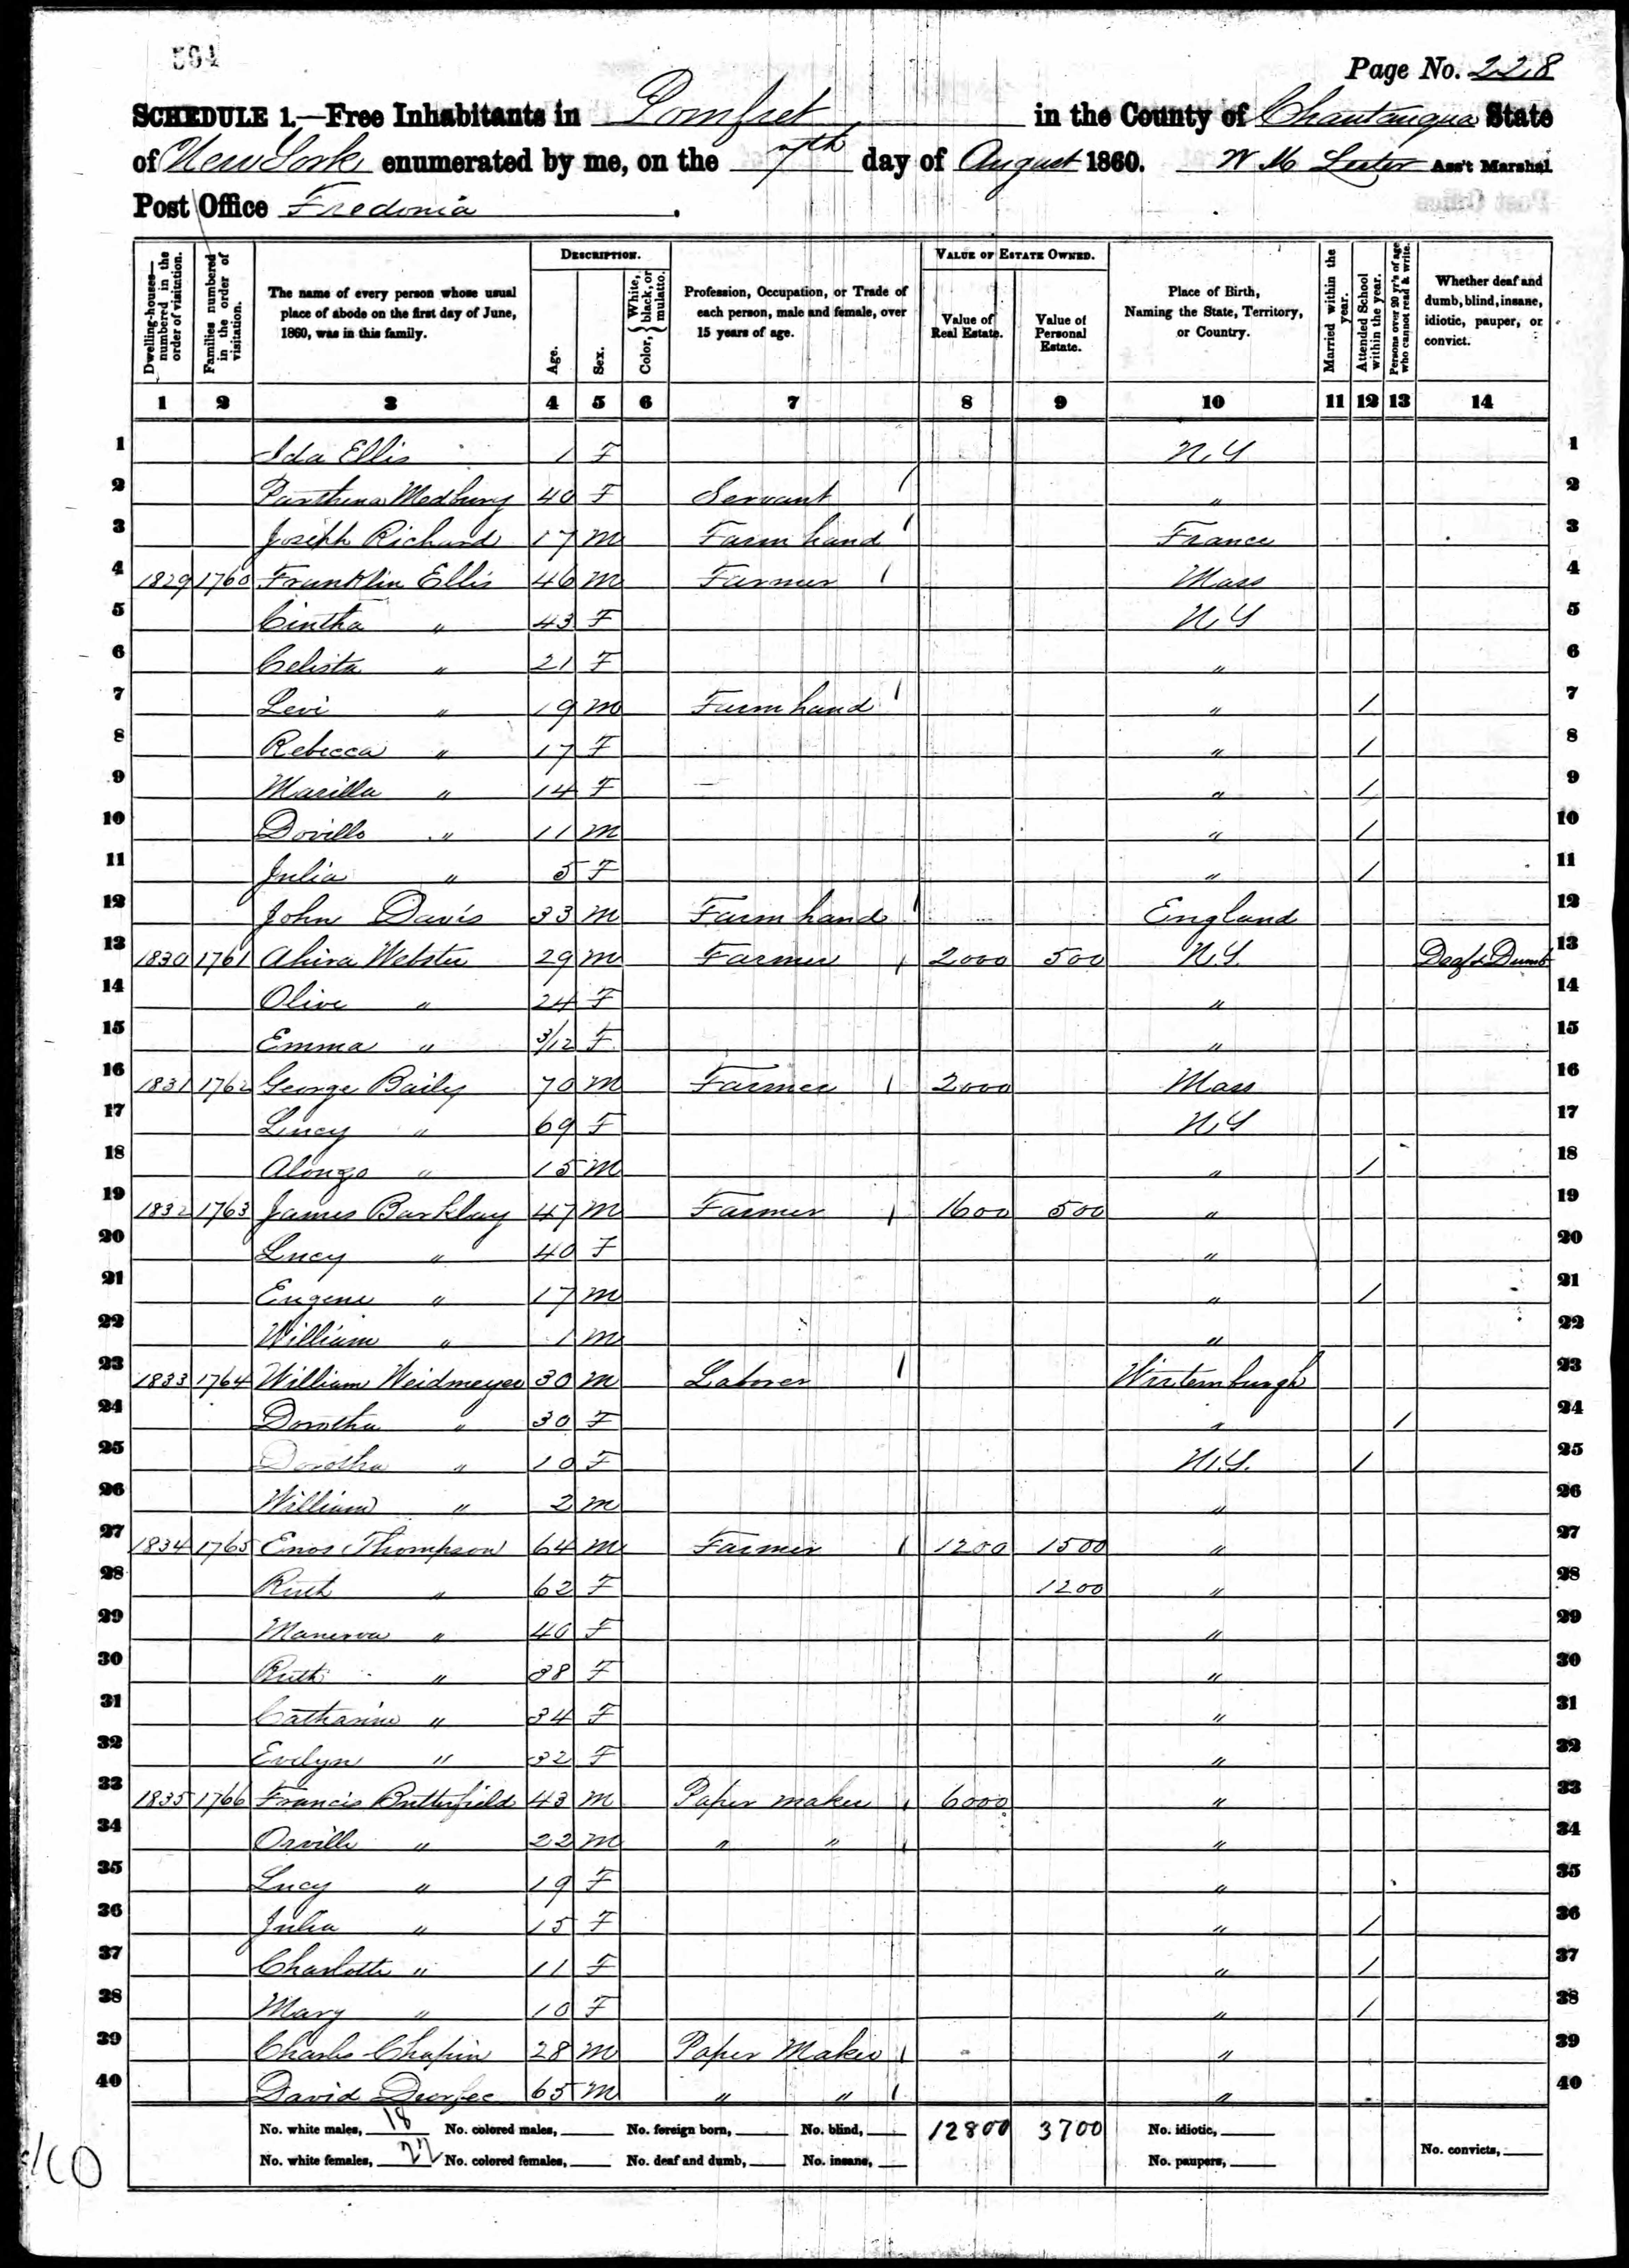 594
Page No. 228
SCHEDULE 1.—Free Inhabitants in Pomfret in the County of Chautauqua State
of New York enumerated by me, on the 7th day of August 1860. W M Lester Ass't Marshal
Post Office Fredonia.
Dwelling-houses—numbered in the order of visitation. Families numbered in the order of visitation. The name of every person whose usual place of abode on the first day of June, 1860, was in this family. DESCRIPTION. Age. Sex. Color, { White, black, or mulatto. Profession, Occupation, or Trade of each person, male and female, over 15 years of age. VALUE OF ESTATE OWNED. Value of Real Estate. Value of Personal Estate. Place of Birth, Naming the State, Territory, or Country. Married within the year. Attended School within the year. Persons over 20 yr's of age who cannot read & write. Whether deaf and dumb, blind, insane, idiotic, pauper, or convict.
1 2 3 4 5 6 7 8 9 10 11 12 13 14
1 Ida Ellis 1 F N.Y 1
2 Parthena Medbury 40 F Servant / " 2
3 Joseph Richard 17 M Farm hand / France 3
4 1829 1760 Franklin Ellis 46 M Farmer / Mass 4
5 Cintha " 43 F N.Y 5
6 Celista " 21 F " 6
7 Levi " 19 M Farm hand / " / 7
8 Rebecca " 17 F " / 8
9 Marilla " 14 F " / 9
10 Dovillo " 11 M " / 10
11 Julia " 5 F " / 11
12 John Davis 33 M Farm hand / England 12
13 1830 1761 Ahira Webster 29 M Farmer / 2000 500 N.Y. Deaf & Dumb 13
14 Olive " 24 F " 14
15 Emma " 3/12 F " 15
16 1831 1762 George Baily 70 M Farmer / 2000 Mass 16
17 Lucy " 69 F N.Y 17
18 Alonzo " 15 M " / 18
19 1832 1763 James Barklay 47 M Farmer / 1600 500 " 19
20 Lucy " 40 F " 20
21 Eugene " 17 M " / 21
22 William " 1 M " 22
23 1833 1764 William Weidmeyer 30 M Laborer / Wirtemburgh 23
24 Dorotha " 30 F " / 24
25 Dorotha " 10 F N.Y. / 25
26 William " 2 M " 26
27 1834 1765 Enos Thompson 64 M Farmer / 1200 1500 " 27
28 Ruth " 62 F 1200 " 28
29 Manerva " 40 F " 29
30 Ruth " 38 F " 30
31 Catharine " 34 F " 31
32 Evelyn " 32 F " 32
33 1835 1766 Francis Butterfield 43 M Paper maker / 6000 " 33
34 Orville " 22 M " " / " 34
35 Lucy " 19 F " 35
36 Julia " 15 F " / 36
37 Charlotte " 11 F " / 37
38 Mary " 10 F " / 38
39 Charles Chapin 28 M Paper Maker / " 39
40 David 65 M " " / " 40
No. white males, 18 No. colored males, No. foreign born, No. blind, 12800 3700 No. idiotic,
No. white females, 22 No. colored females, No. deaf and dumb, No. insane, No. paupers, No. convicts,